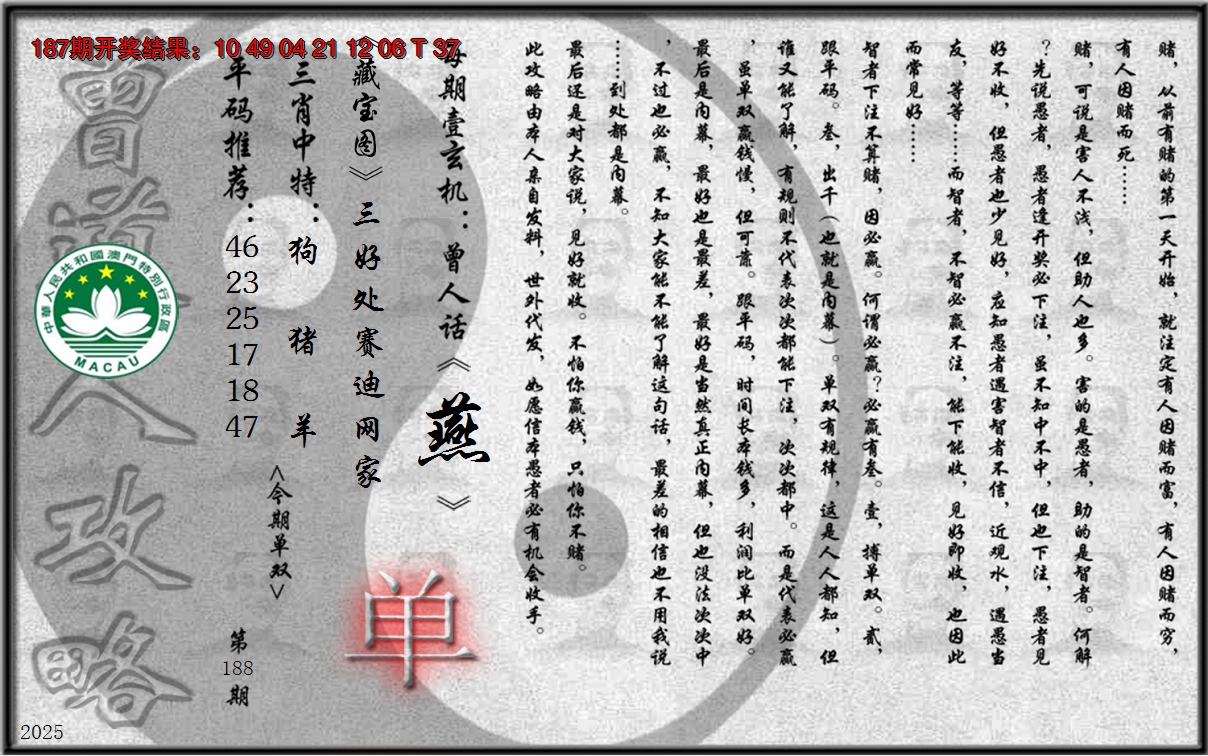 187期开奖结果：10 49 04 21 12 06 T 37
赌，从前有赌的第一天开始，就注定有人因赌而富，有人因赌而穷，
有人因赌而死……
赌，可说是害人不浅，但助人也多。害的是愚者，助的是智者。何解
？先说愚者，愚者逢开奖必下注，虽不知中不中，但也下注，愚者见
好不收，但愚者也少见好，应知愚者遇害智者不信，近观水，遇愚当
友，等等……而智者，不智必赢不注，能下能收，见好即收，也因此
而常见好……
智者下注不算赌，因必赢。何谓必赢？必赢有叁。壹，搏单双。贰，
跟平码。叁，出千（也就是内幕）。单双有规律，这是人人都知，但
谁又能了解，有规则不代表次次都能下注，次次都中。而是代表必赢
，虽单双赢钱慢，但可靠。跟平码，时间长本钱多，利润比单双好。
最后是内幕，最好也是最差，最好是当然真正内幕，但也没法次次中
，不过也必赢，不知大家能不能了解这句话，最差的相信也不用我说
……到处都是内幕。
最后还是对大家说，见好就收。不怕你赢钱，只怕你不赌。
此攻略由本人亲自发料，世外代发，如愿信本愚者必有机会收手。
每期壹玄机：曾人话《燕》
《藏宝图》三好处赛迪网家
单
三肖中特：狗 猪 羊
<今期单双>
平码推荐：46 23 25 17 18 47
第188期
曾道人攻略
中華人民共和國澳門特別行政區
MACAU
2025